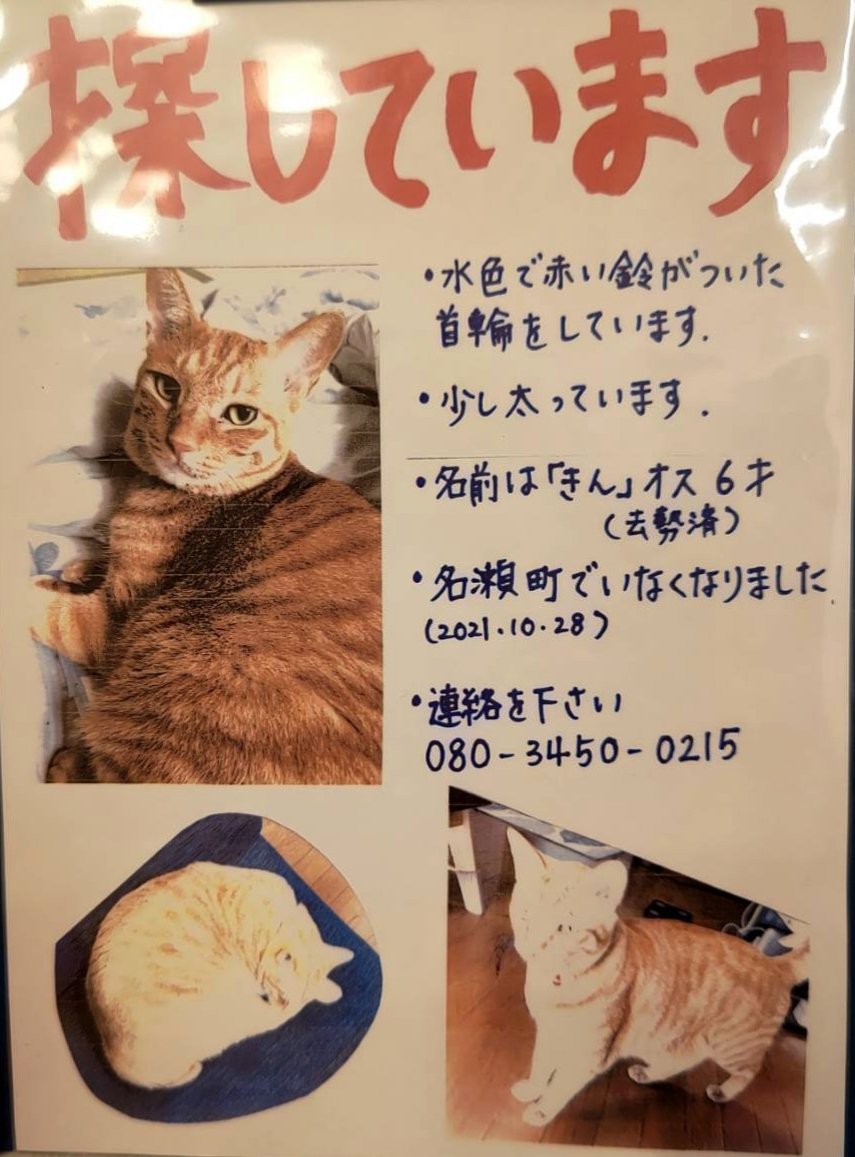 探しています
・水色で赤い鈴がついた
首輪をしています.
・少し太っています.
・名前は「きん」オス 6才
(去勢済)
・名瀬町でいなくなりました
(2021.10.28)
・連絡を下さい
080-3450-0215